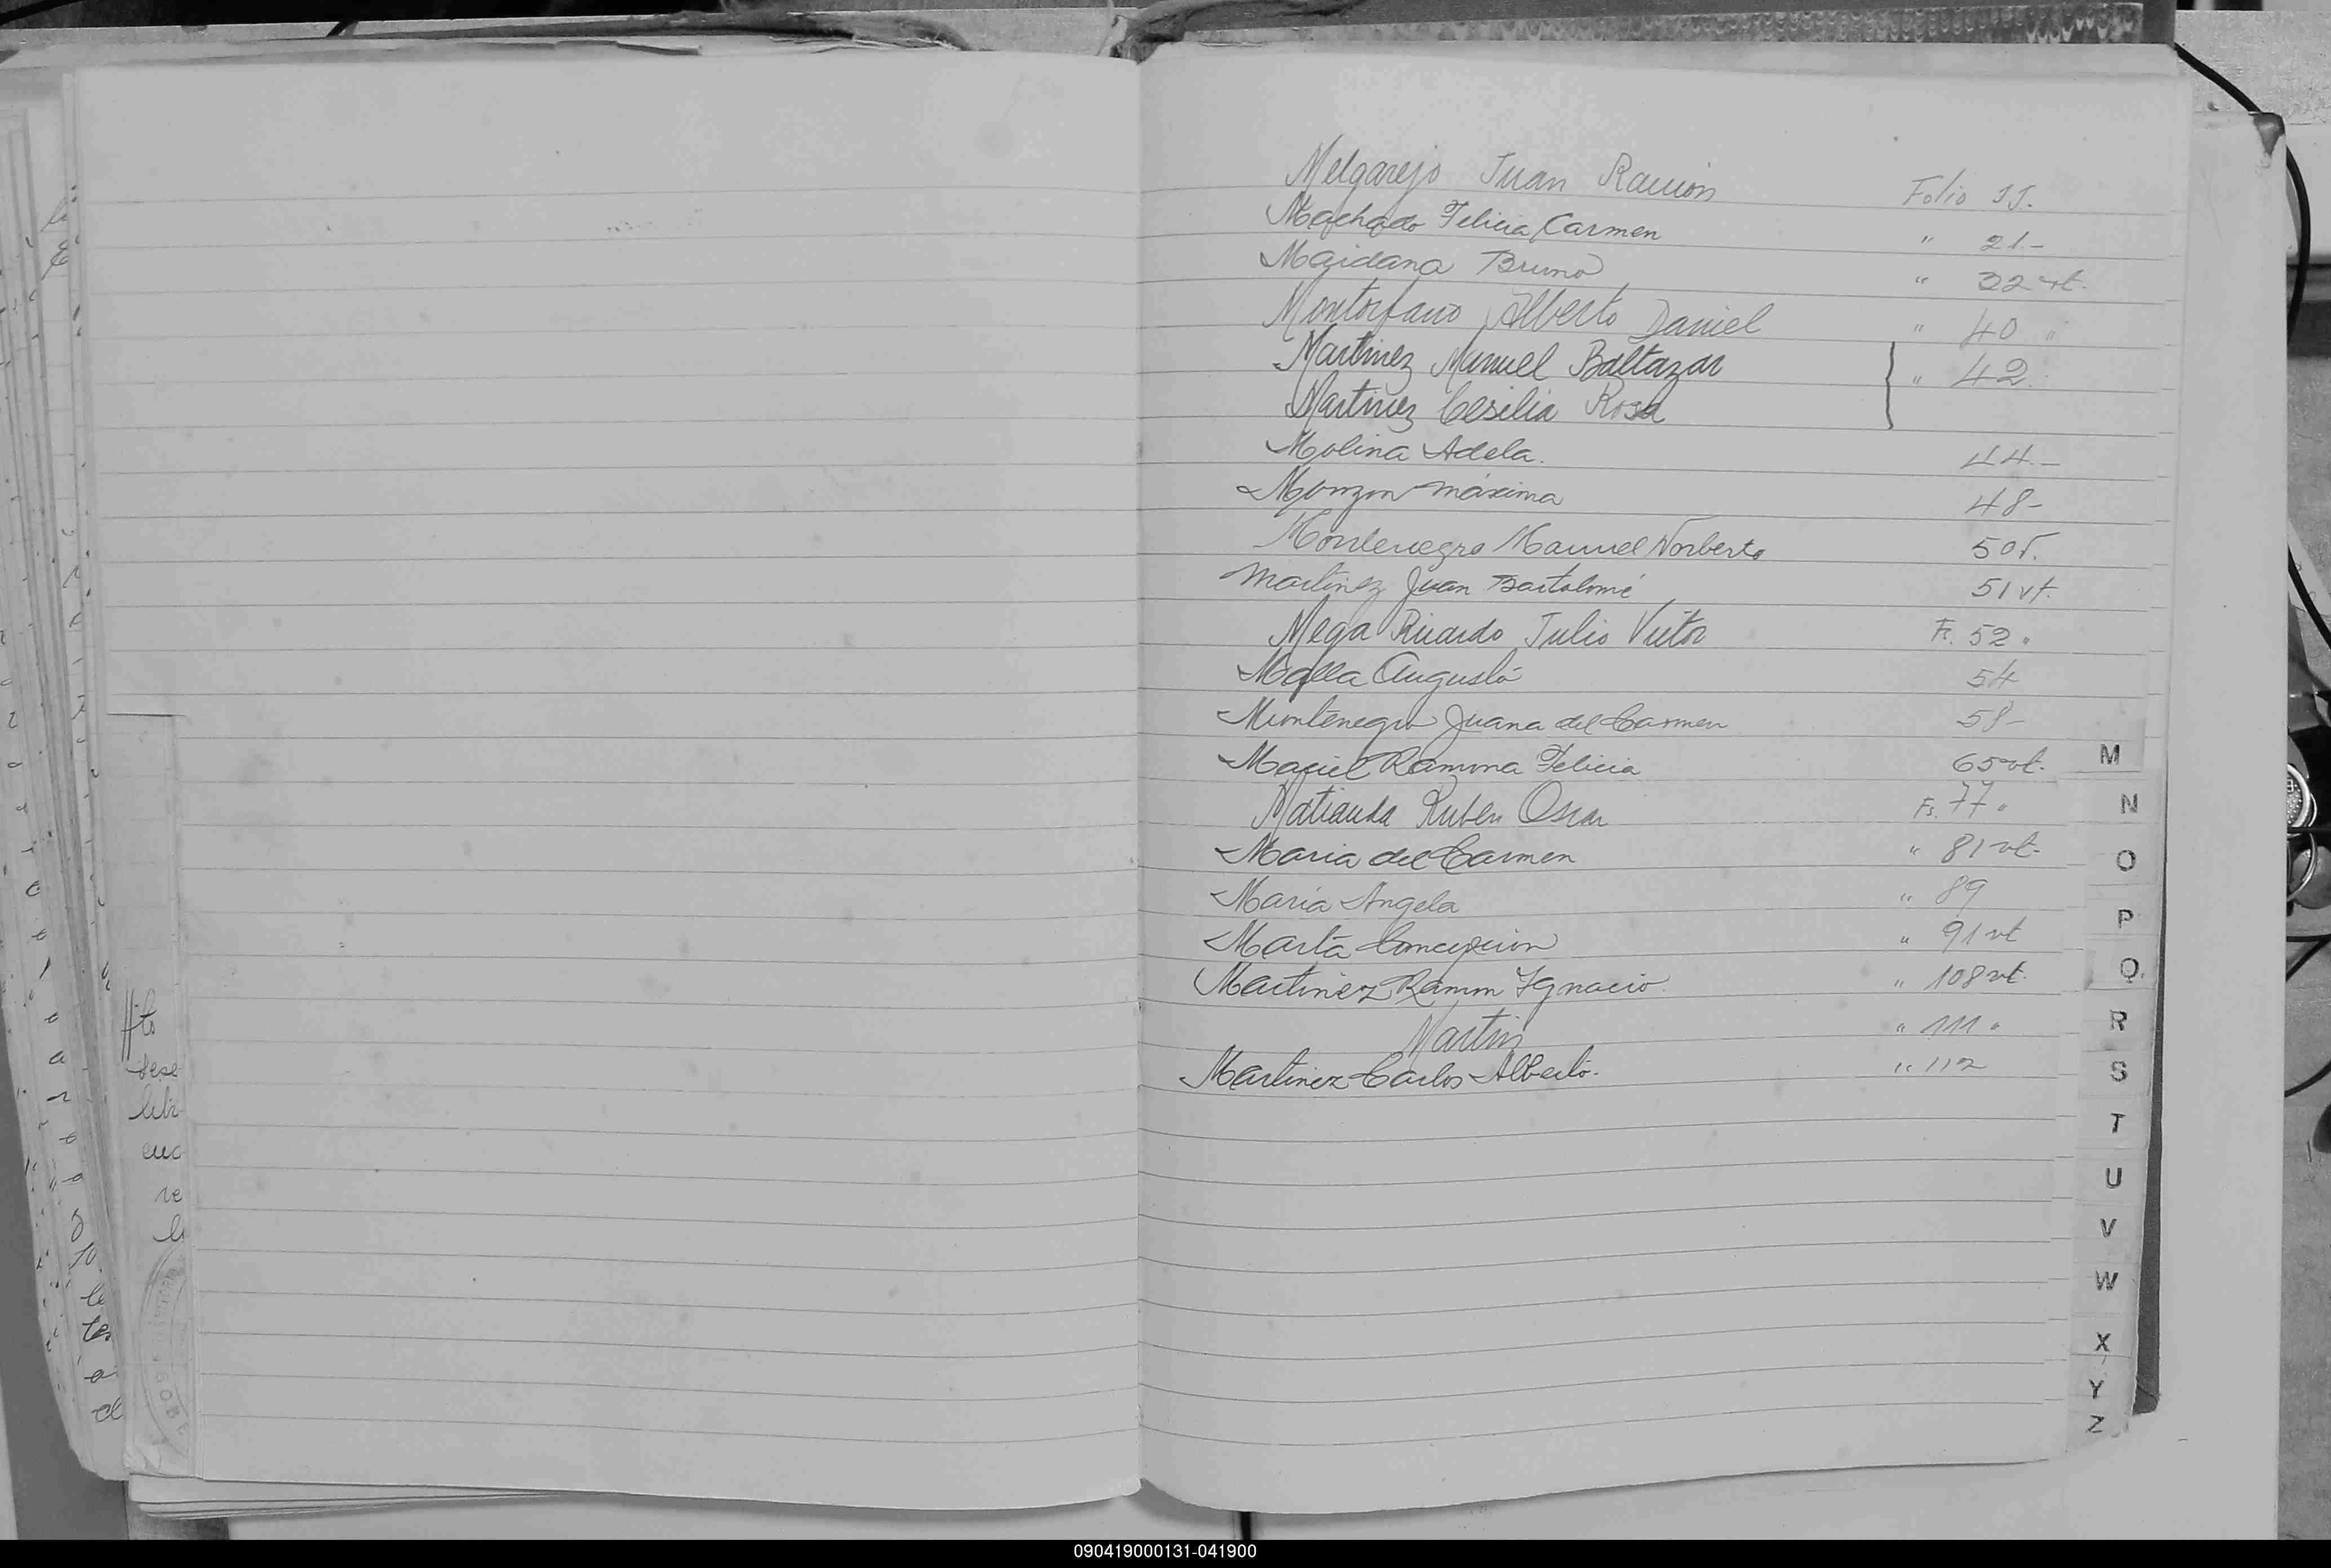 Melgarejo Juan Ramón Folio 11.
Machado Felicia Carmen " 21.-
Maidana Bruno " 32 vt.
Montorfano Alberto Daniel " 40 "
Martinez Manuel Baltazar " 42.
Martinez Cesilia Rosa
Molina Adela. 44.-
Monzon Máxima 48-
Montenegro Manuel Norberto 50
Martinez Juan Bartolomé 51 vt.
Mega Ricardo Julio Victor Fs. 52 "
Malla Augusto 54
Montenegro Juana del Carmen 58-
Maciel Ramona Felicia 65 vt.
Ruben Oscar Fs. 77 "
Maria del Carmen " 81 vt.
Maria Angela " 89
Marta Concepcion " 91 vt
Martinez Ramon Ygnacio. " 108 vt.
Martin " 111 "
Martinez Carlos Alberto. " 112
M
N
O
P
Q
R
S
T
U
V
W
X
Y
Z
090419000131-041900